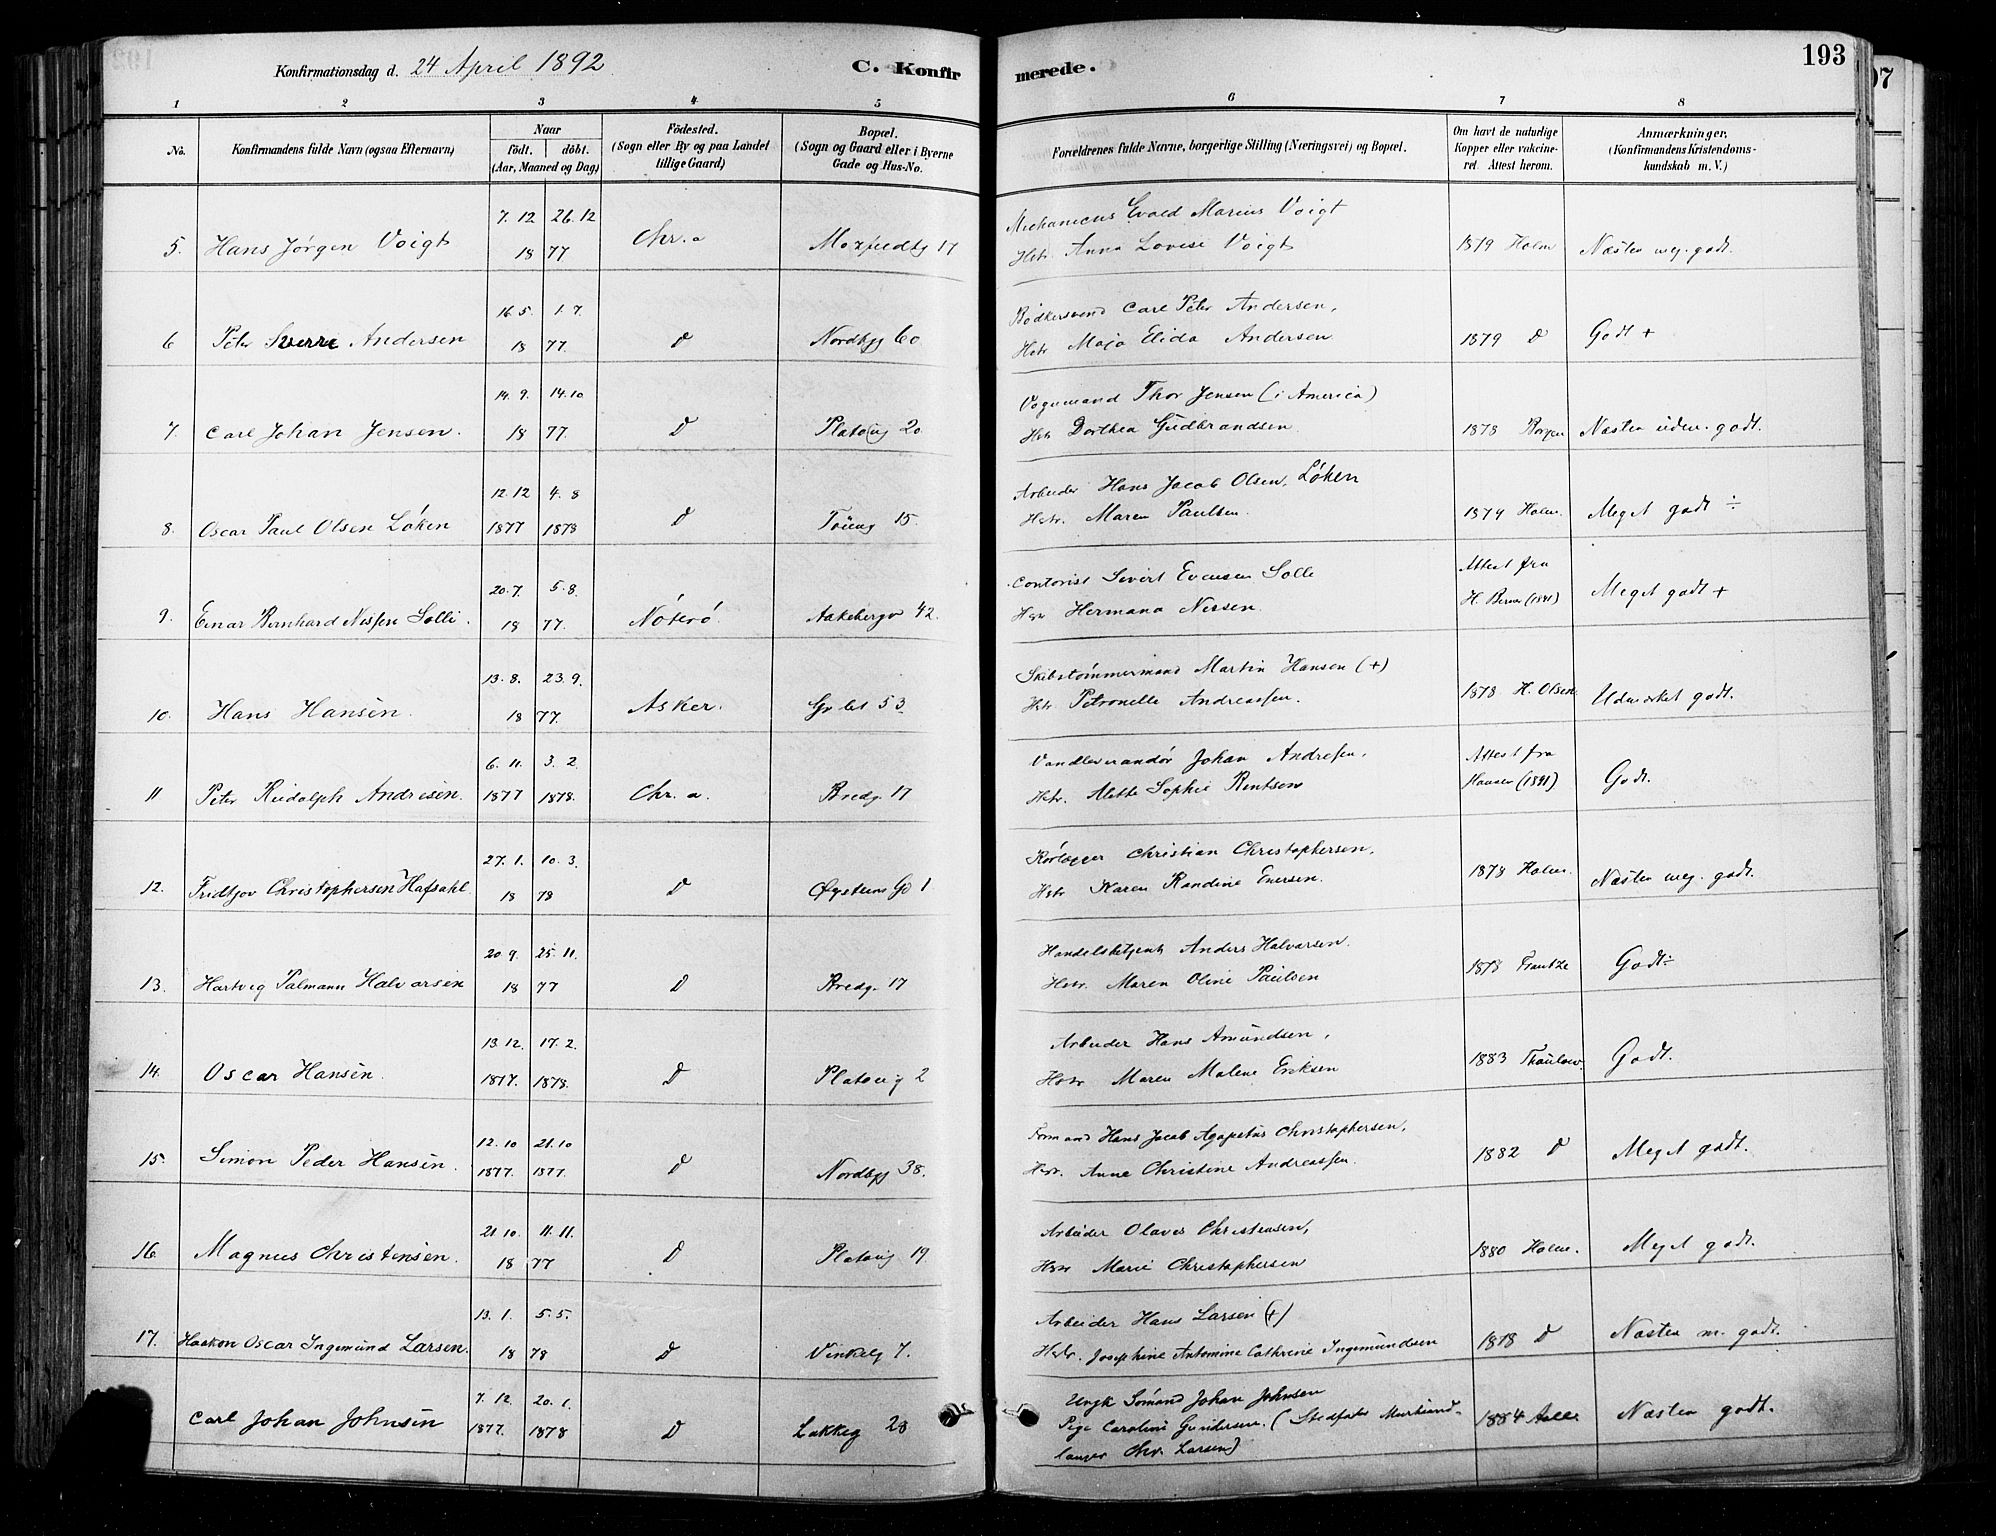 Konfirmationsdag d. 24 April 1892 C. Konfirmerede. 193
1 2 3 4 5 6 7 8
No.
Konfirmandens fulde Navn (ogsaa Efternavn)
Naar
födt. döbt.
(Aar, Maaned og Dag)
Födested.
(Sogn eller By og paa Landet
tillige Gaard)
Bopæl.
(Sogn og Gaard eller i Byerne
Gade og Hus-No.
Forældrenes fulde Navne, borgerlige Stilling (Næringsvei) og Bopæl.
Om havt de naturlige
Kopper eller vakcine-
ret. Attest herom.
Anmærkninger,
(Konfirmandens Kristendoms-
kundskab m. V.)
7. 12 26. 12 Mechanicus Evald Marius Voigt
5. Hans Jørgen Voigt 18 77 Chr.a 17 Hstr. Anna Lovise Voigt 1879 Holm Næsten meg. godt.
16. 5. 1. 7. Bødkersvend Carl Peter Andersen,
6 Peter Sverre Andersen 18 77. D Nordbyg 60 Hstr Maja Elida Andersen 1879 D Godt +
14. 9. 14. 10 Vognmand Thor Jensen (i America)
7. Carl Johan Jensen. 18 77. D Platoug 20. Hstr Dorthea Gudbrandsen. 1878 Borgen Næsten udm. godt.
12. 12 4. 8 Arbeider Hans Jacob Olsen, Løken
8. Oscar Paul Olsen Løken 1877 1878 D Tøieng 15. Hstr. Maren Paulsen. 1874 Holm. Meget godt ÷
20. 7. 5. 8. Contorist Sivert Evensen Solli Attest fra
9. Einar Bernhard Nissen Solli. 18 77. Nøterø Aakebergv 42. Hstr Hermana Nissen. (1891) Meget godt +
13. 8. 23. 9. Skibstømmermand Martin Hansen (+)
10. Hans Hansen. 18 77. Asker. Grlet 53. Hstr Petronelle Andreassen. 1878 H. Olsen Udmærket godt.
6. 11. 3. 2. Vandleverandør Johan Andresen, Attest fra
11 Peter Rudolph Andresen. 1877 1878. Chr. a. Bredg. 17 Hstr. Alette Sophie Rentson Hansen (1891) Godt.
27. 1. 10. 3. Rørlægger Christian Christophersen,
12. Fridtjov Christophersen Hafsahl 18 78 D Øysteins Gd 1 Hstr Karen Randine Enersen. 1878 Holm. Næsten meg. godt.
20. 9. 25. 11. Handelsbetjent Anders Halvorsen.
13. Hartvig Palmann Halvorsen 18 77 D Bredg. 17 Hstr. Maren Oline Paulsen 1878 Frantze Godt ÷
13. 12. 17. 2. Arbeider Hans Amundsen,
14. Oscar Hansen. 1877. 1878. D Platoug 2 Hstr Maren Malene Eriksen 1883 Thaulow. Godt.
12. 10 21. 10 Formand Hans Jacob Agapetus Christophersen,
15. Simon Peder Hansen. 1877. 1877. D Nordbyg 38. Hstr. Anne Christine Andreassen. 1882 D Meget godt.
21. 10. 11. 11. Arbeider Olaves Christensen,
16. Magnus Christensen. 18 77 D Platoug 19. Hstr Marie Christophersen 1880 Holm. Meget godt.
13. 1. 5. 5. Arbeider Hans Larsen (+)
17. Haakon Oscar Ingemund Larsen. 18 78 D Vinkelg 7. Hstr. Josephine Antomine Cathrine Ingemundsen 1878 D Næsten m. godt.
7. 12. 20. 1. Ungk Sømand Johan Johnsen
Carl Johan Johnsen 1877. 1878 D Lakkeg 28 Pige Caroline Gundersen. (Stedfader Murhand- 1884 Næsten godt.
langer Chr. Larsen)